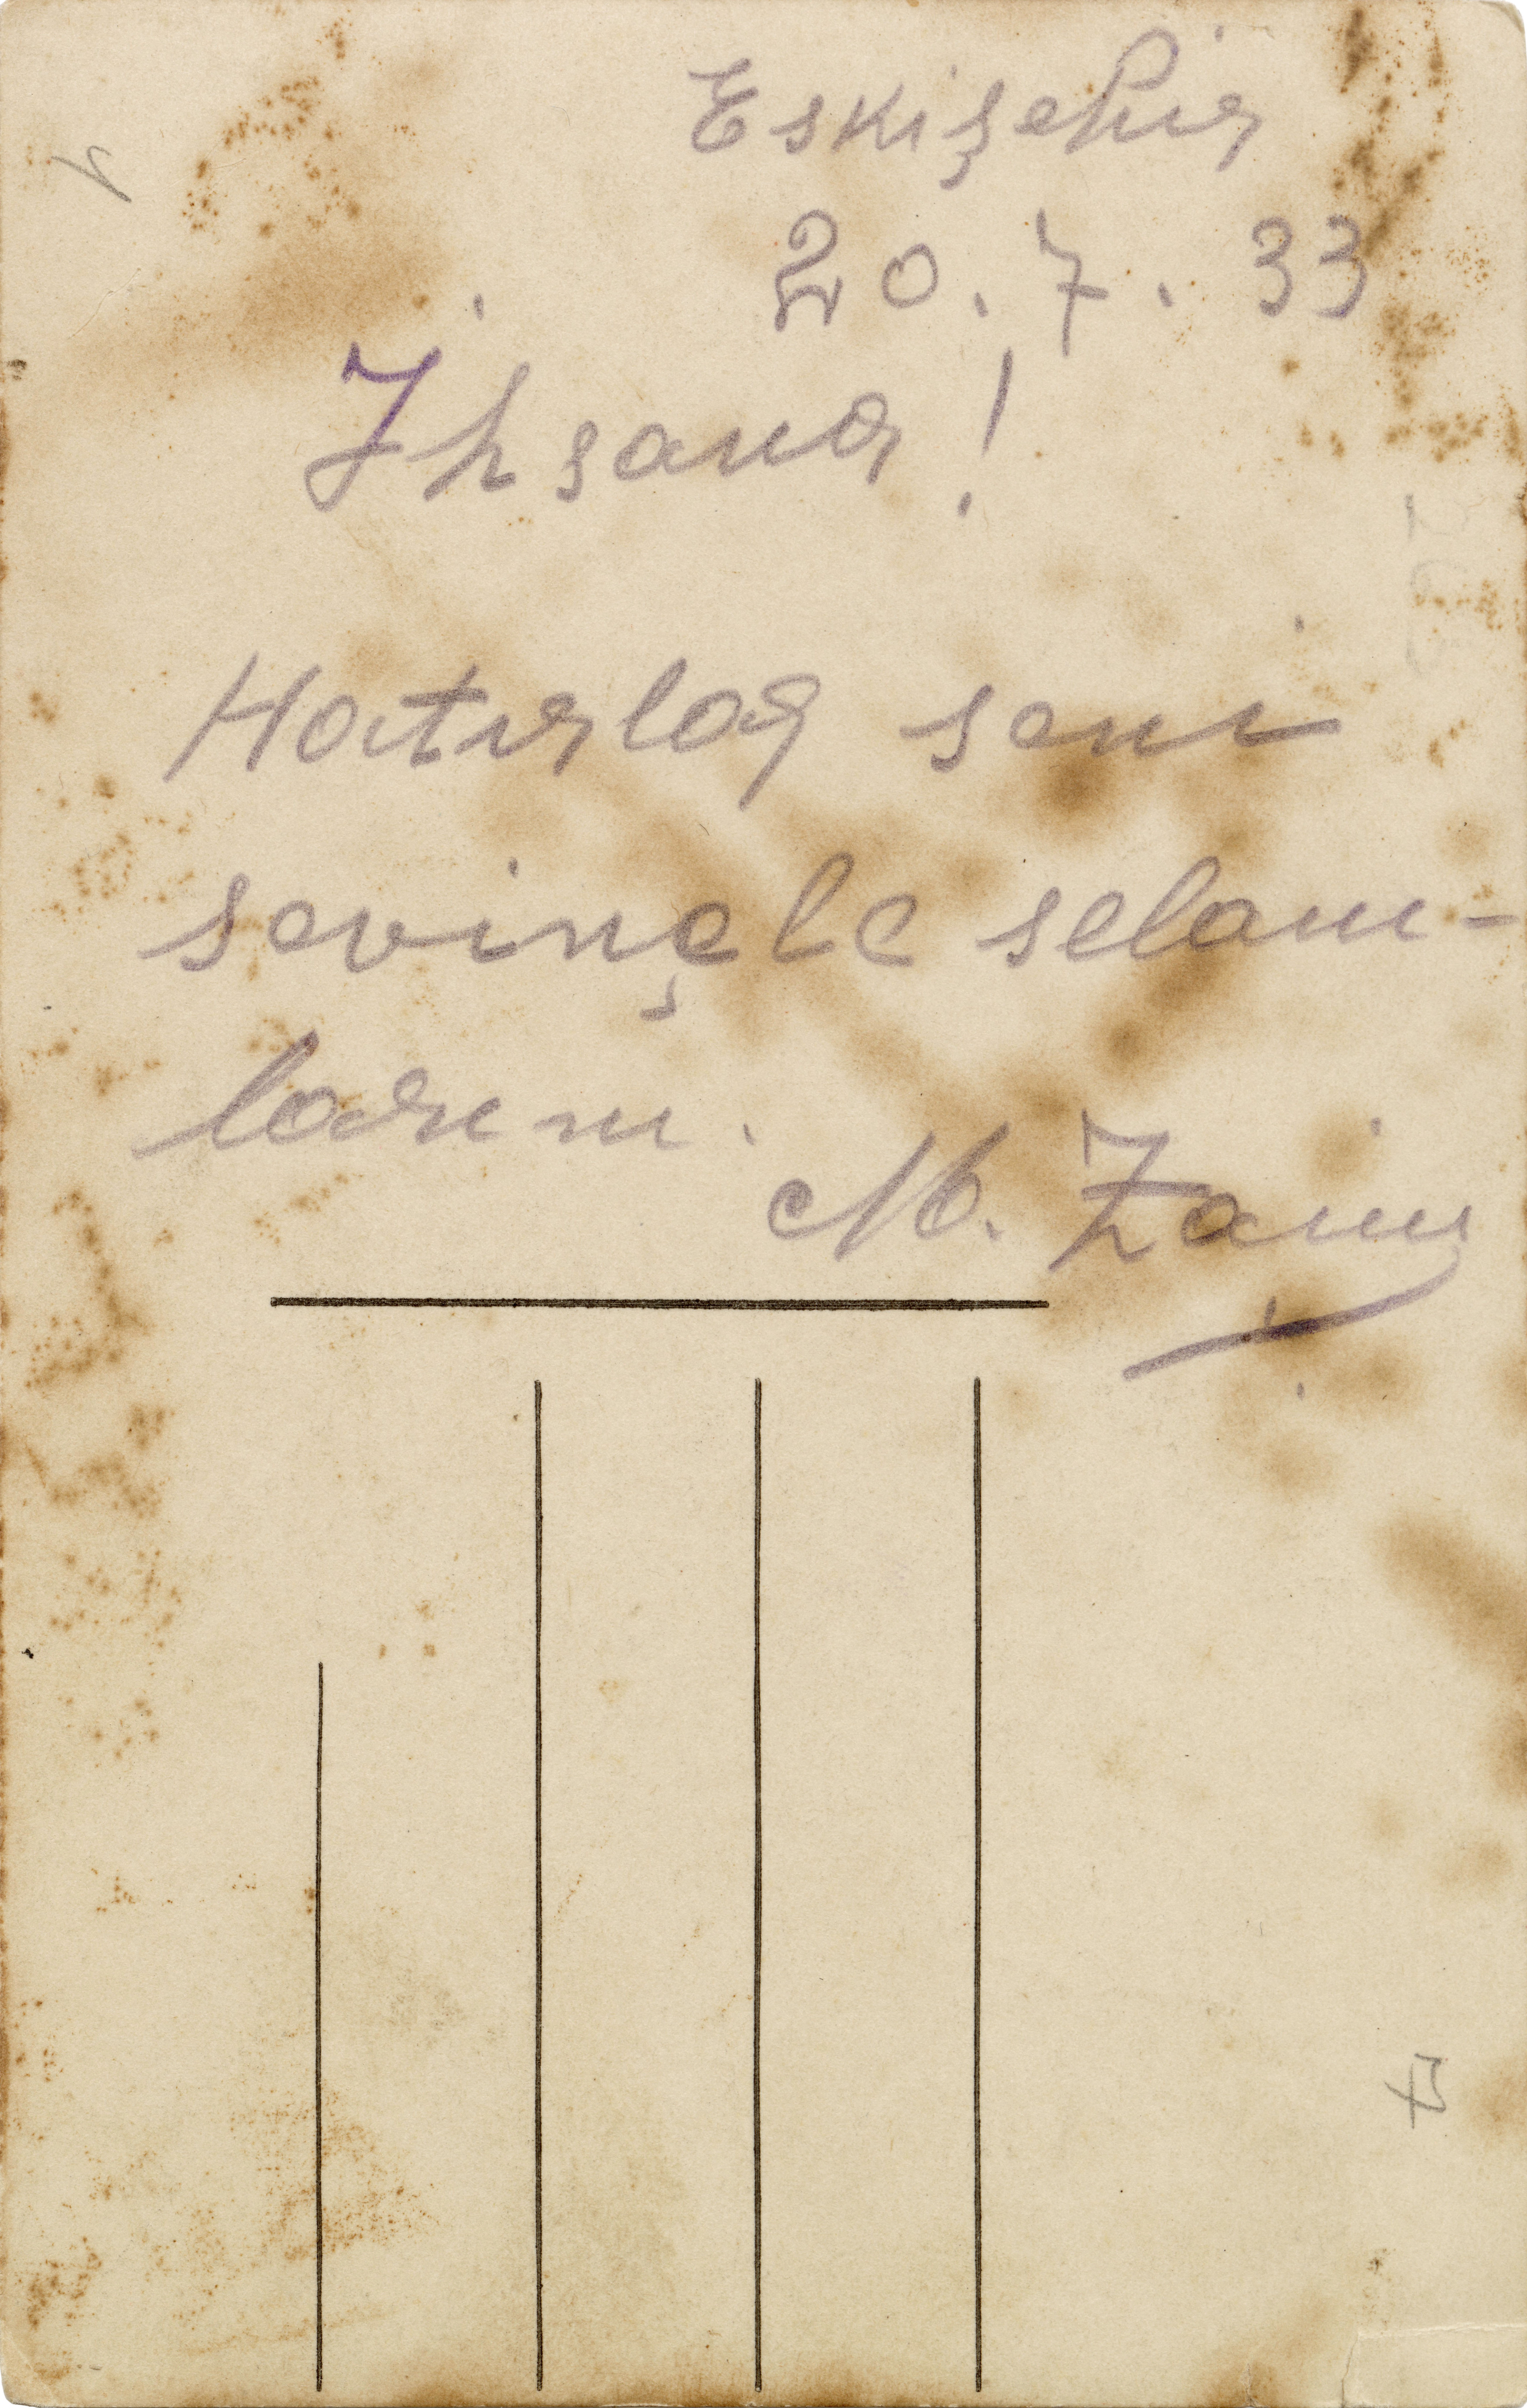 Eskişehir
20.7.33
İhsana!
Hatırlar seni
sevinçle selam-
larım.
M. Zaim